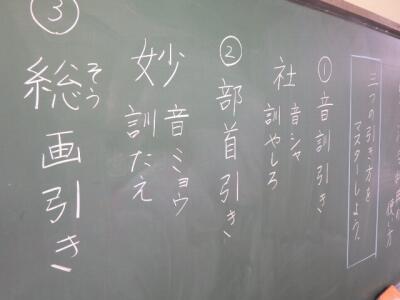 使い方
三つの引き方を
マスターしよう。
① 音訓引き
社 音シャ
訓やしろ
② 部首引き
妙 音ミョウ
訓たえ
③
総画引き
そう